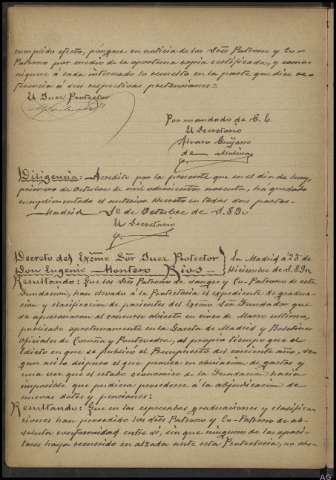 cumplido efecto, póngase en noticia de los Sres Patrono y Co-
Patrono por medio de la oportuna copia certificada, y comu-
níquese á cada interesado lo resuelto en la parte que dice re-
ferencia á sus respectivas pretensiones.=
El Juez Protector
Por mandado de S. E.
El Secretario
Alvaro
de
Diligencia: Acredito por la presente que en el día de hoy,
primero de Octubre de mil ochocientos noventa, ha quedado
cumplimentado el anterior decreto en todas sus partes.
Madrid 1º de Octubre de 1.890.
El Secretario
Decreto del Excmo Sor Juez Protector
Don Eugenio Montero Rios.=
En Madrid á 23 de
Diciembre de 1.890.
Resultando: Que los Sres Patrono de sangre y Co-Patrono de esta
Fundación, han elevado á la Protectoría el expediente de gradua-
ción y clasificación de parientes del Excmo Sor Fundador que
se aparecieron al concurso abierto en cinco de Marzo último,
publicado oportunamente en la Gaceta de Madrid y Boletines
oficiales de Coruña y Pontevedra, al propio tiempo que el
edicto en que se publicó el llamamiento del
que así lo dispuso el por economía de gastos y
una vez que el estado económico de la Fundación hacía
imposible que pudiera procederse á la adjudicación de
nuevas dotes y pensiones:
Resultando: Que en las expresadas graduaciones y clasifica-
ciones han procedido los Sres Patrono y Co-Patrono de ab-
soluta conformidad entre sí, sin que ninguno de los oposi-
tores haya recurrido en alzada ante esta Protectoría, no obs-